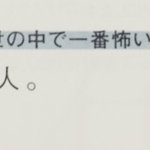 世の中で一番怖い
人。